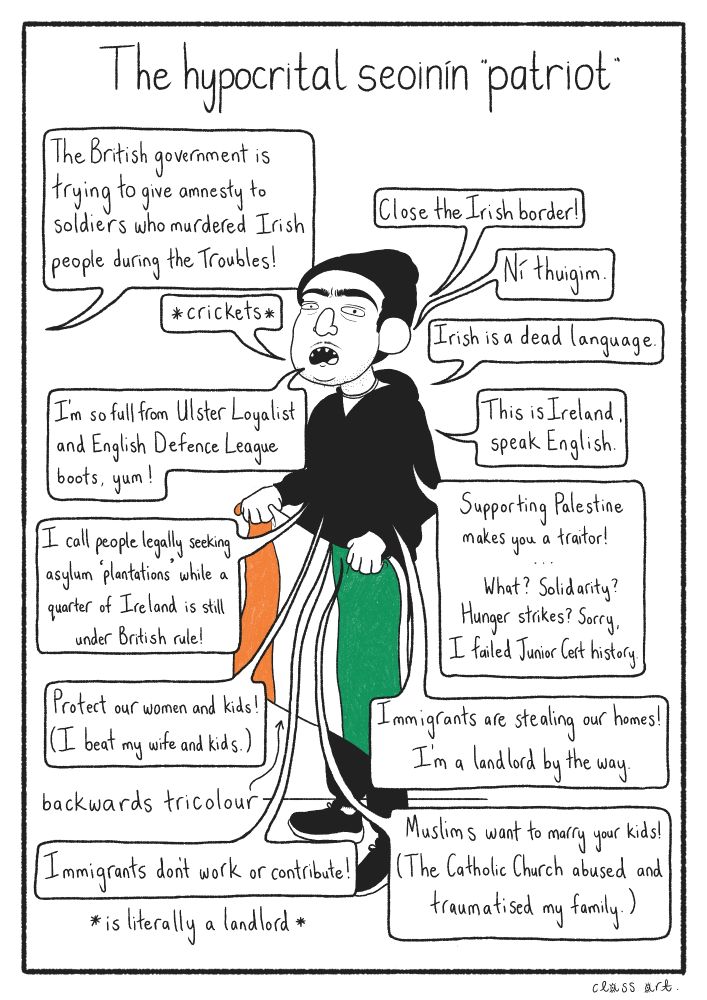 The hypocrital seoinín "patriot"
The British government is
trying to give amnesty to
soldiers who murdered Irish
people during the Troubles!
*crickets*
Close the Irish border!
Ní thuigim.
Irish is a dead language.
This is Ireland,
speak English.
I'm so full from Ulster Loyalist
and English Defence League
boots, yum!
Supporting Palestine
makes you a traitor!
...
What? Solidarity?
Hunger strikes? Sorry,
I failed Junior Cert history.
I call people legally seeking
asylum 'plantations' while a
quarter of Ireland is still
under British rule!
Protect our women and kids!
(I beat my wife and kids.)
Immigrants are stealing our homes!
I'm a landlord by the way.
backwards tricolour
Muslims want to marry your kids!
(The Catholic Church abused and
traumatised my family.)
Immigrants don't work or contribute!
*is literally a landlord*
class art.